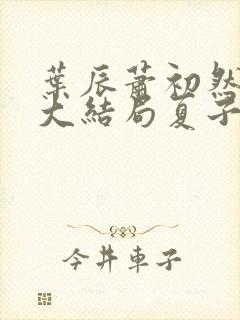 葉辰蕭初然
大結局夏子
今井車子